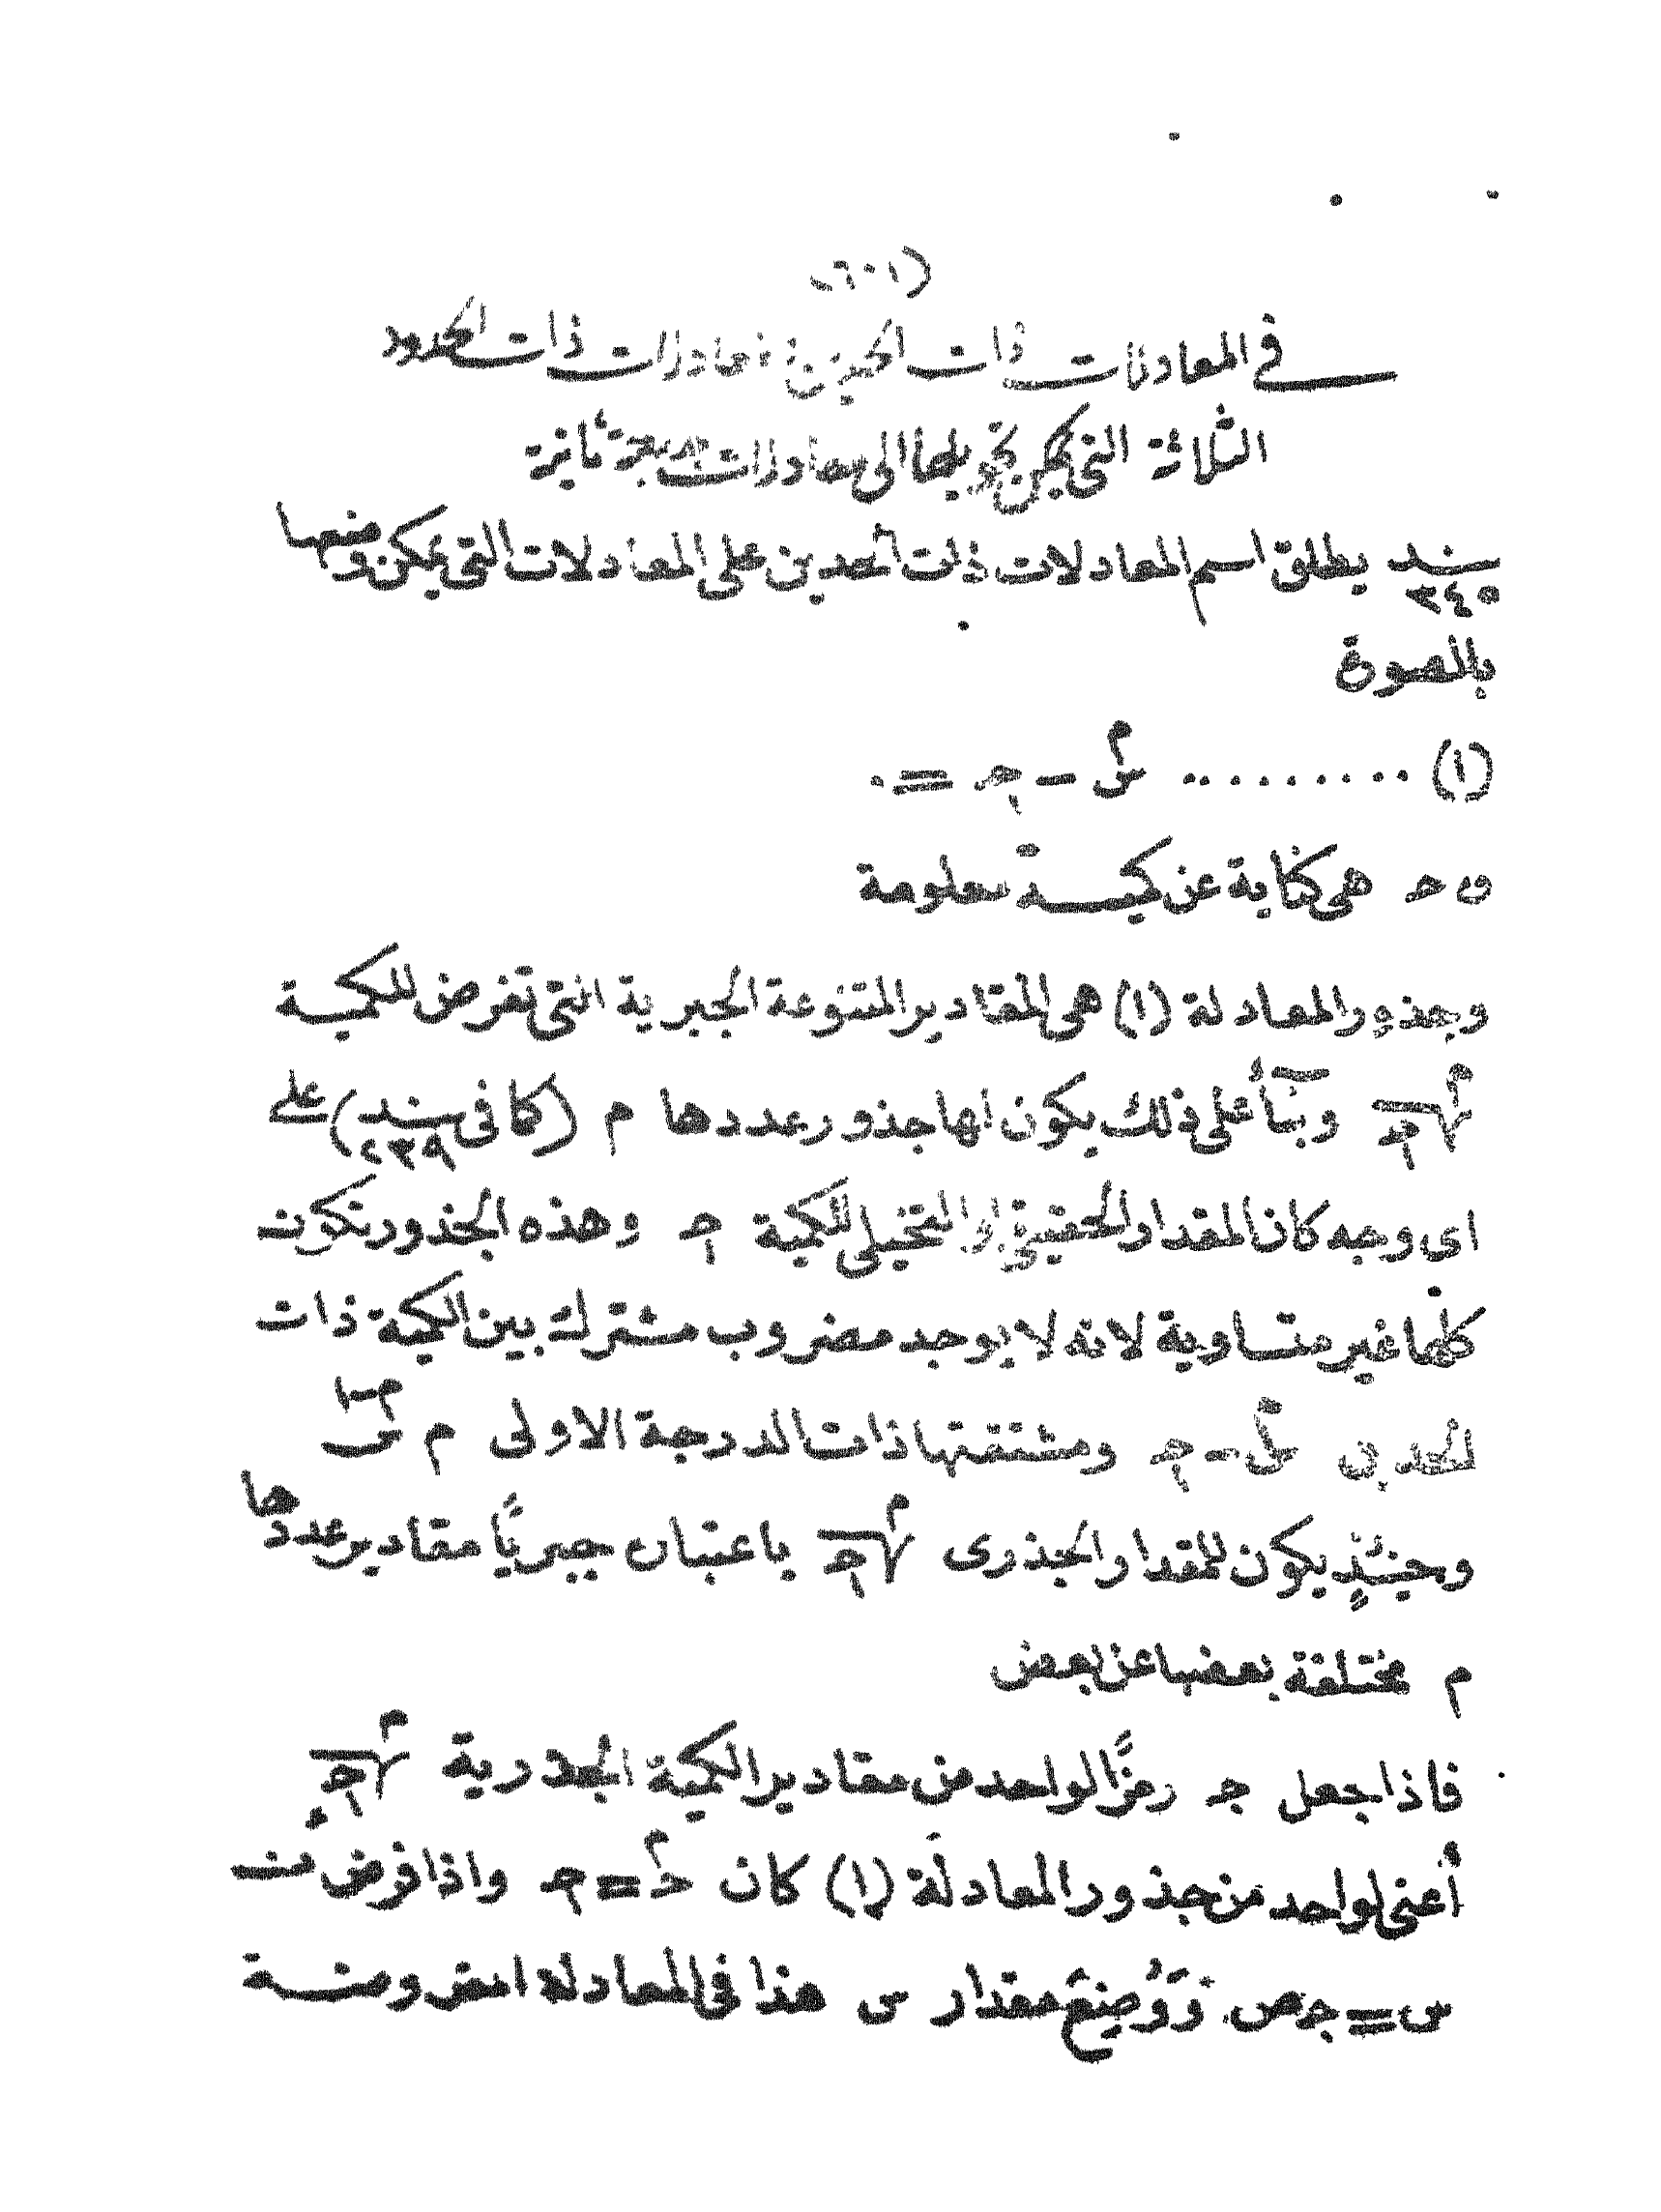 (٦٠١)
في المعادلات ذات الحدين والمعادلات ذات الحدود
الثلاثة التي يمكن تحويلها الى معادلات درجة ثانية
سند ٣٤٥ يطلق اسم المعادلات ذات الحدين على المعادلات التي يمكن وضعها
بالصورة
(١) .......... س^م - جـ = ٠
و حـ هى كناية عن كمية معلومة
وجذور المعادلة (١) هى المقادير المتنوعة الجبرية التى تفرض للكمية
م√جـ وبنآء على ذلك يكون لها جذور عددها م (كما فى سند ٢٣٩) على
اى وجه كان المقدار الحقيقى او التخيلى للكمية جـ وهذه الجذور تكون
كلها غير متساوية لانه لا يوجد مضروب مشترك بين الكمية ذات
الحدين س^م - جـ ومشتقتها ذات الدرجة الاولى م س^م-١
وحينئذٍ يكون للمقدار الجذرى م√جـ باعتبار جبريًّا مقادير عددها
م مختلفة بعضها عن بعض
فاذا جعل جـ رمزًا لواحد من مقادير الكمية الجذرية م√جـ
أعنى لواحد من جذور المعادلة (١) كان حـ^م = جـ واذا فرض ان
س = جـ ص ووُضِعَ مقدار س هذا فى المعادلة المفروضة